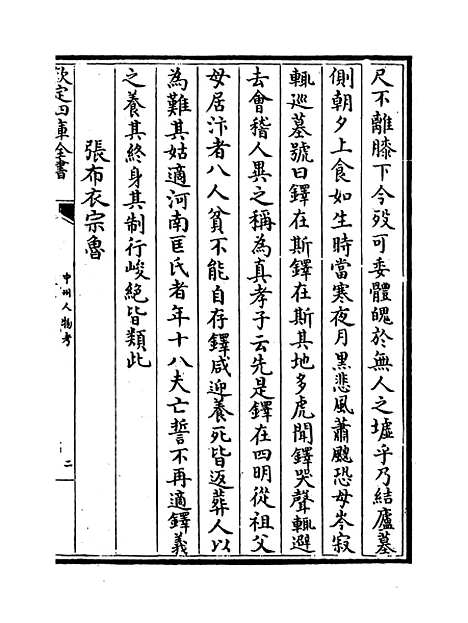 尺不離膝下今殁可委體魄於無人之墟乎乃結廬墓
側朝夕上食如生時當寒夜月黑悲風蕭颼恐母岑寂
輒巡墓號曰鐸在斯鐸在斯其地多虎聞鐸哭聲輒避
去會稽人異之稱為真孝子云先是鐸在四明從祖父
母居汴者八人貧不能自存鐸咸迎養死皆返葬人以
為難其姑適河南匡氏者年十八夫亡誓不再適鐸義
之養其終身其制行峻絕皆類此
張布衣宗魯
欽定四庫全書
中州人物考
二